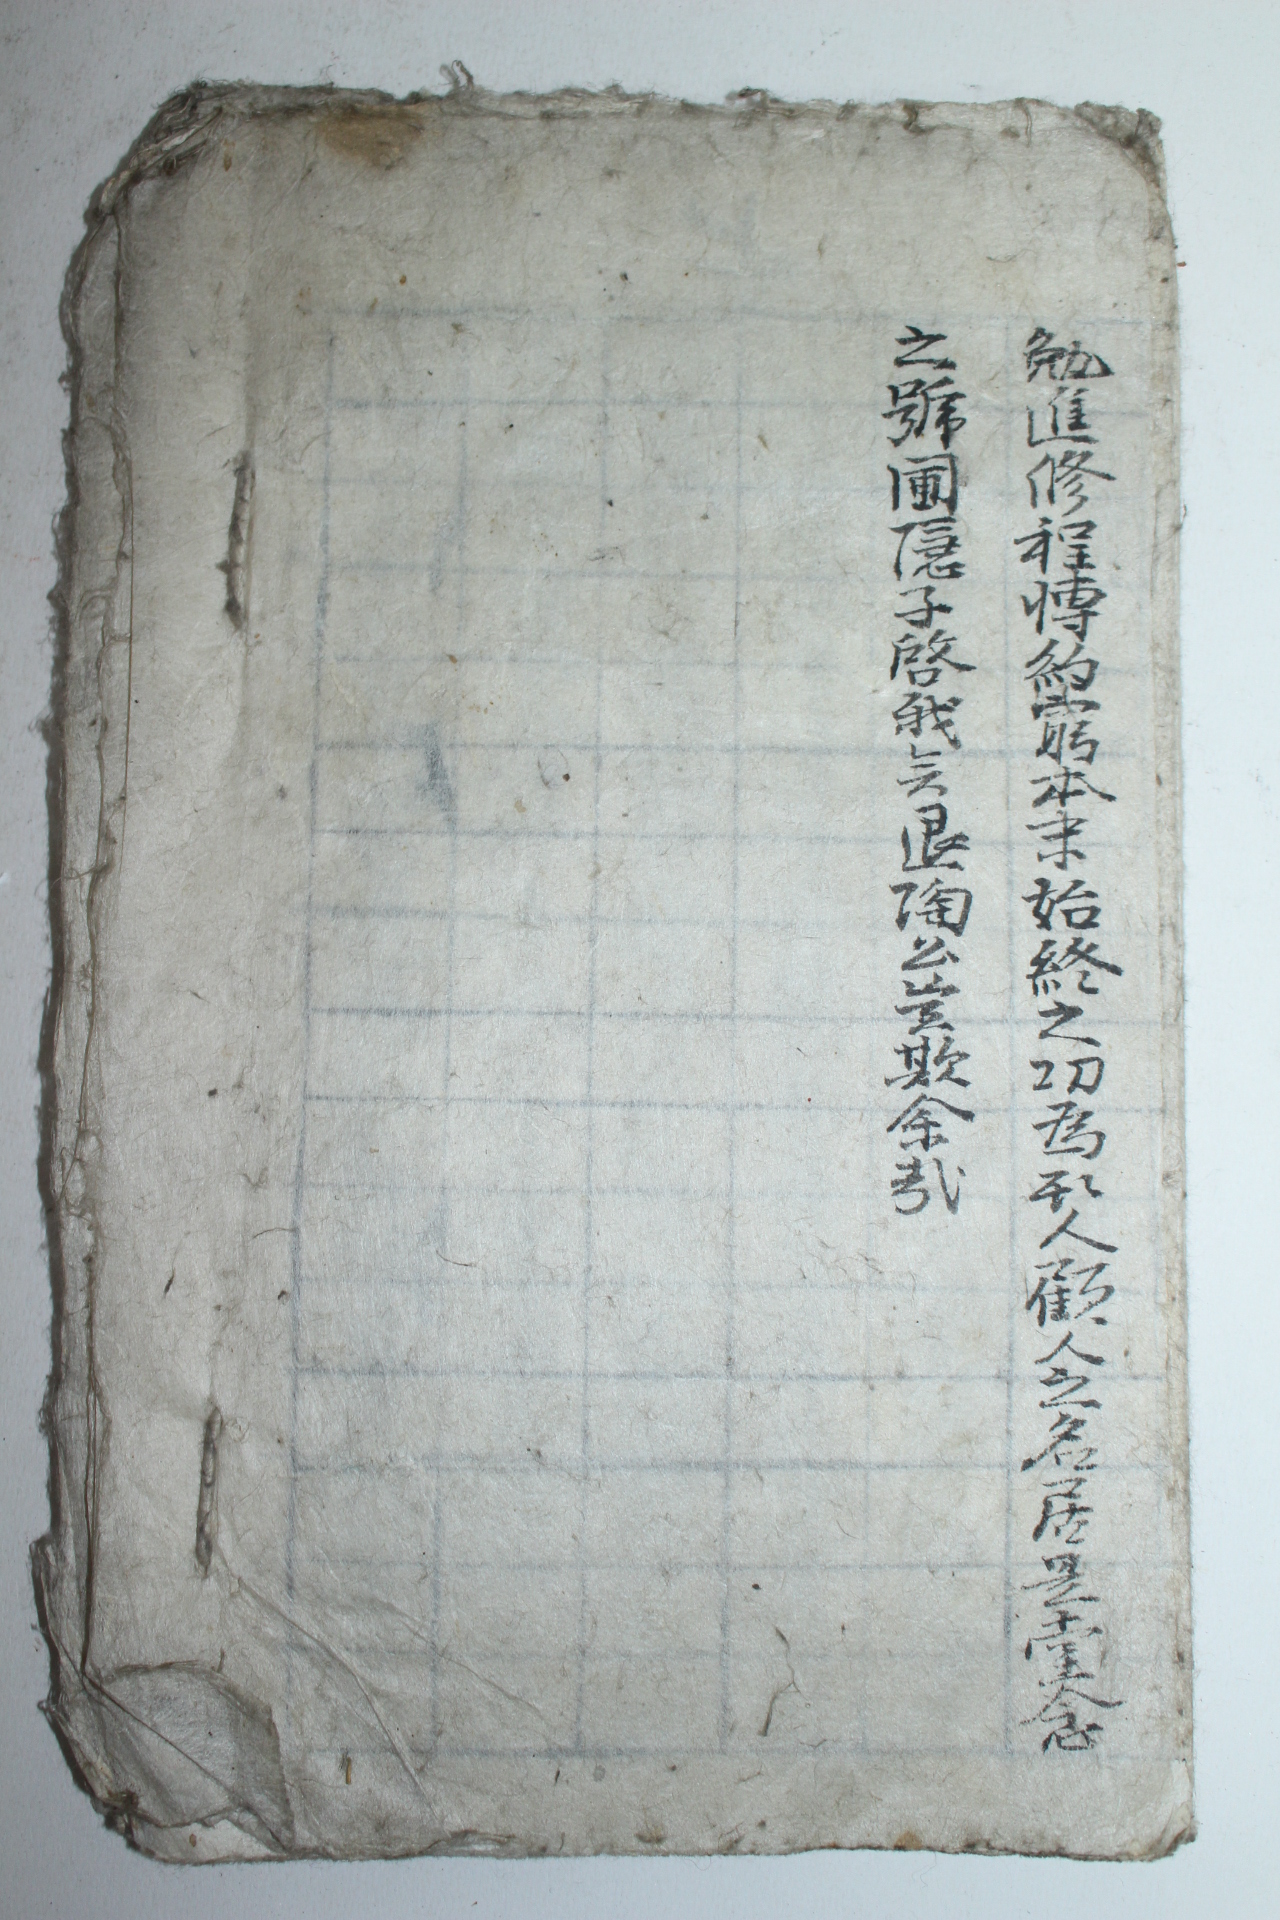 勉進修程博約窮本末始終之功為形人顧人之名居是堂念
之號圃隱子啓我矣退陶公豈欺余哉